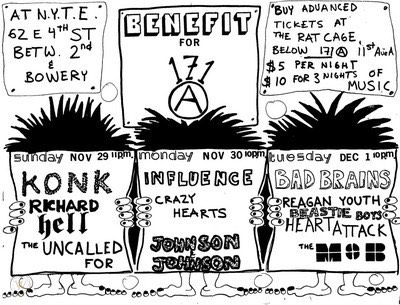 AT N.Y.T.E.
62 E 4TH ST
BETW. 2nd
& BOWERY
BENEFIT
FOR
171
A
"BUY ADVANCED
TICKETS AT
THE RAT CAGE,
BELOW 171 A 11st AveA
$5 PER NIGHT
$10 FOR 3 NIGHTS OF
MUSIC
sunday NOV 29 11pm
KONK
RICHARD
hell
THE UNCALLED
FOR
monday NOV 30 10pm
INFLUENCE
CRAZY
HEARTS
JOHNSON
JOHNSON
tuesday DEC 1 10pm
BAD BRAINS
REAGAN YOUTH
BEASTIE BOYS
HEART ATTACK
THE MOB